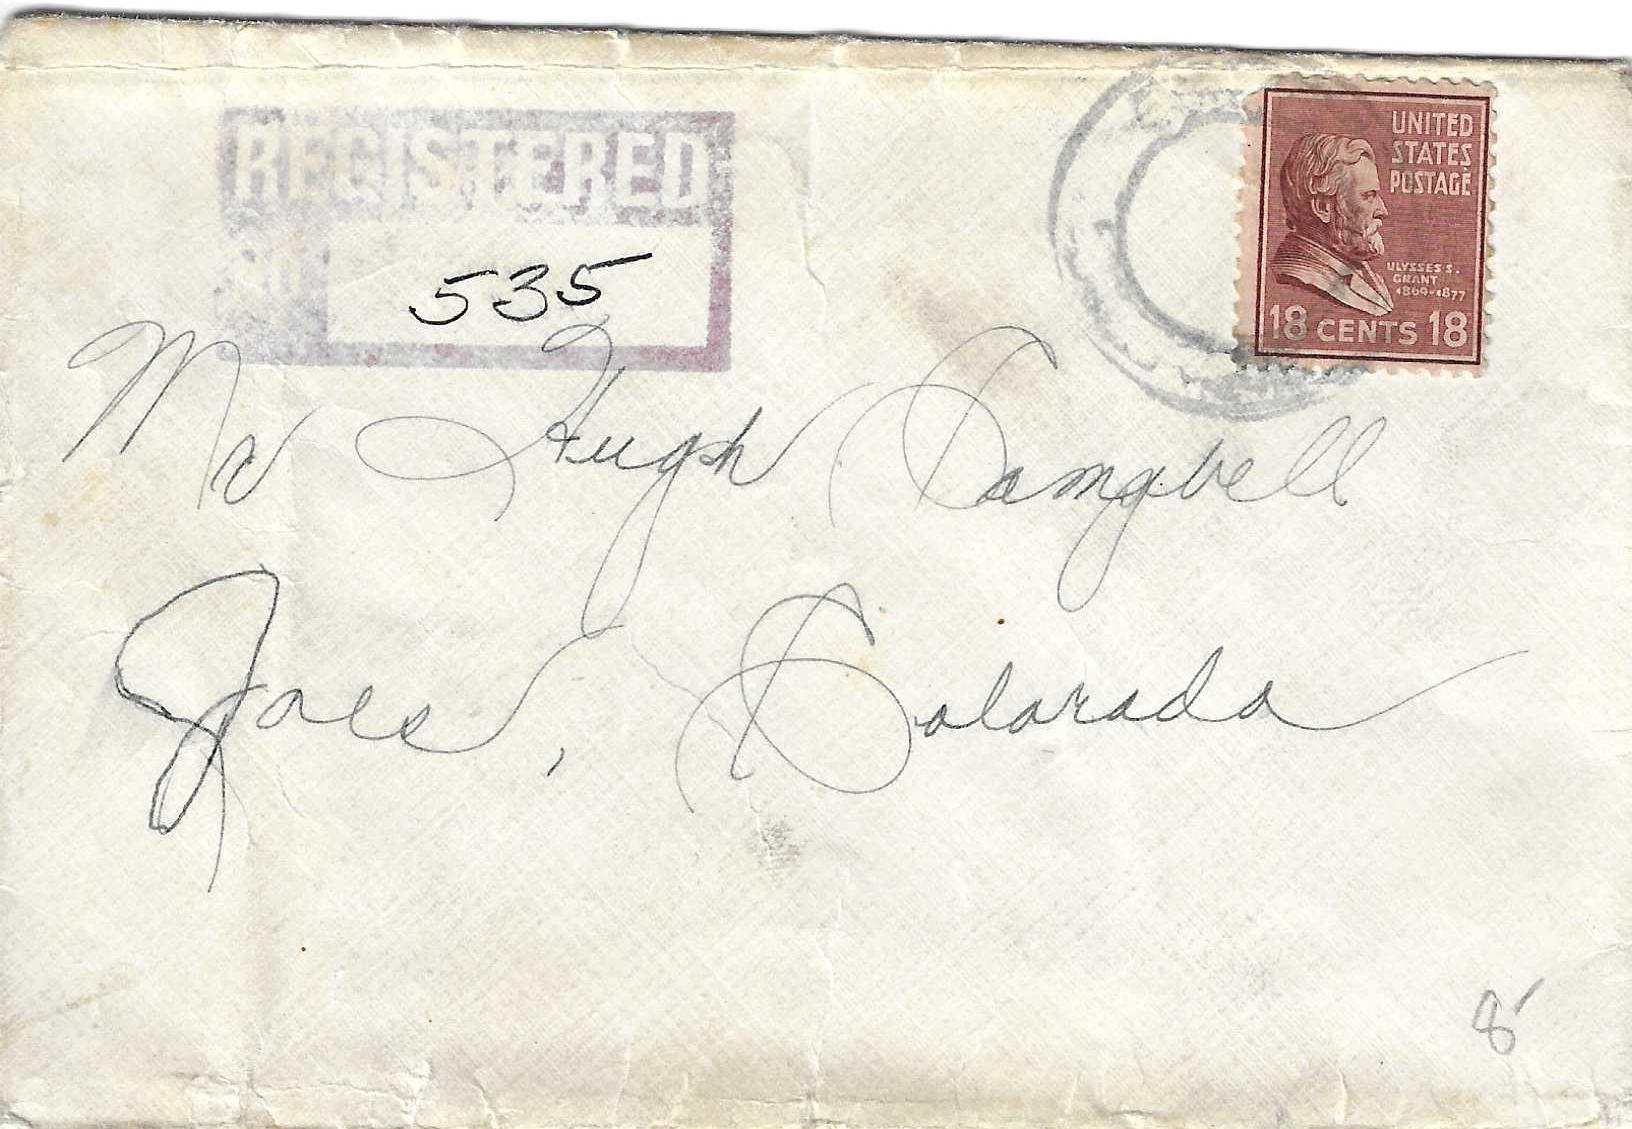 REGISTERED
NO.
535
UNITED
STATES
POSTAGE
ULYSSES S.
GRANT
1869-1877
18 CENTS 18
Mr Hugh Campbell
Joes, Colorado
8